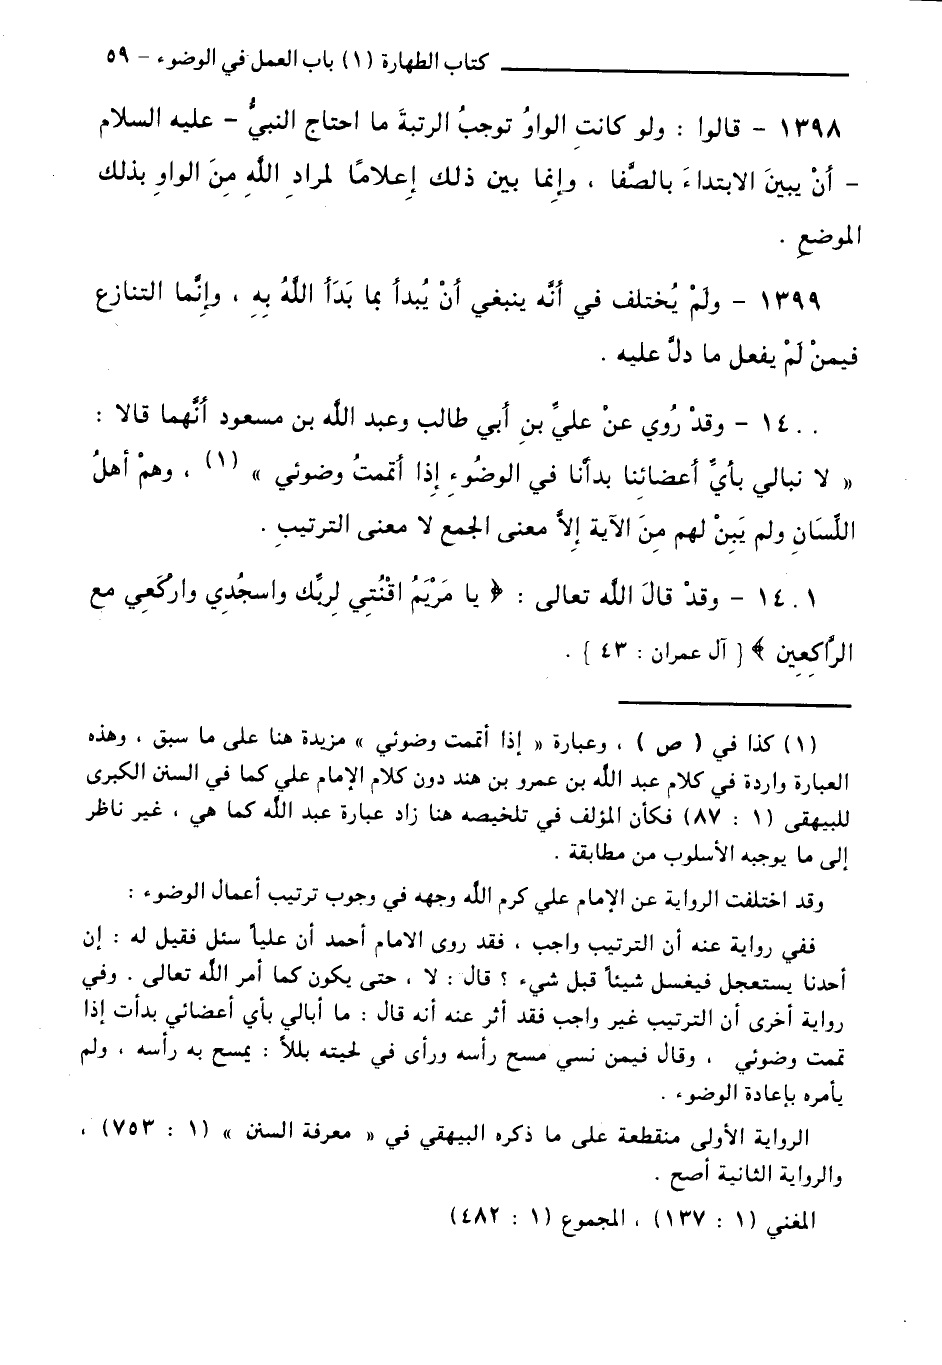 كتاب الطهارة (١) باب العمل في الوضوء – ٥٩
١٣٩٨ – قالوا : ولو كانتِ الواوُ توجبُ الرتبةَ ما احتاج النبيُّ – عليه السلام
– أنْ يبينَ الابتداءَ بالصَّفا ، وإِنما بين ذلك إِعلامًا لمرادِ اللَّهِ مِنَ الواوِ بذلك
الموضعِ .
١٣٩٩ – ولَمْ يُختلف في أنَّه ينبغي أنْ يُبدأ بما بَدَأ اللَّهُ بِهِ ، وإِنَّما التنازع
فيمنْ لَمْ يفعل ما دلَّ عليه .
١٤٠٠ – وقدْ رُوي عنْ عليِّ بنِ أبي طالب وعبد اللَّه بن مسعود أنَّهما قالا :
« لا نبالي بأيِّ أعضائنا بدأنا في الوضُوءِ إِذا أتممتُ وضوئي » (١) ، وهمْ أهلُ
اللِّسَانِ ولم يَبِنْ لهم مِنَ الآية إِلاَّ معنى الجمع لا معنى الترتيبِ .
١٤٠١ – وقدْ قالَ اللَّه تعالى : ﴿ يا مَرْيَمُ اقْنُتِي لِرَبِّك واسجُدِي واركَعِي مع
الرَّاكِعِين ﴾ [ آل عمران : ٤٣ ] .
(١) كذا في ( ص ) ، وعبارة « إذا أتممت وضوئي » مزيدة هنا على ما سبق ، وهذه
العبارة واردة في كلام عبد الله بن عمرو بن هند دون كلام الإمام علي كما في السنن الكبرى
للبيهقى (١ : ٨٧) فكأن المؤلف في تلخيصه هنا زاد عبارة عبد الله كما هي ، غير ناظر
إلى ما يوجبه الأسلوب من مطابقة .
وقد اختلفت الرواية عن الإمام علي كرم الله وجهه في وجوب ترتيب أعمال الوضوء :
ففي رواية عنه أن الترتيب واجب ، فقد روى الامام أحمد أن علياً سئل فقيل له : إن
أحدنا يستعجل فيغسل شيئاً قبل شيء ؟ قال : لا ، حتى يكون كما أمر الله تعالى . وفي
رواية أخرى أن الترتيب غير واجب فقد أثر عنه أنه قال : ما أبالي بأي أعضائي بدأت إذا
تممت وضوئي ، وقال فيمن نسي مسح رأسه ورأى في لحيته بللاً : يمسح به رأسه ، ولم
يأمره بإعادة الوضوء .
الرواية الأولى منقطعة على ما ذكره البيهقي في « معرفة السنن » (١ : ٧٥٣) ،
والرواية الثانية أصح .
المغني (١ : ١٣٧) ، المجموع (١ : ٤٨٢)